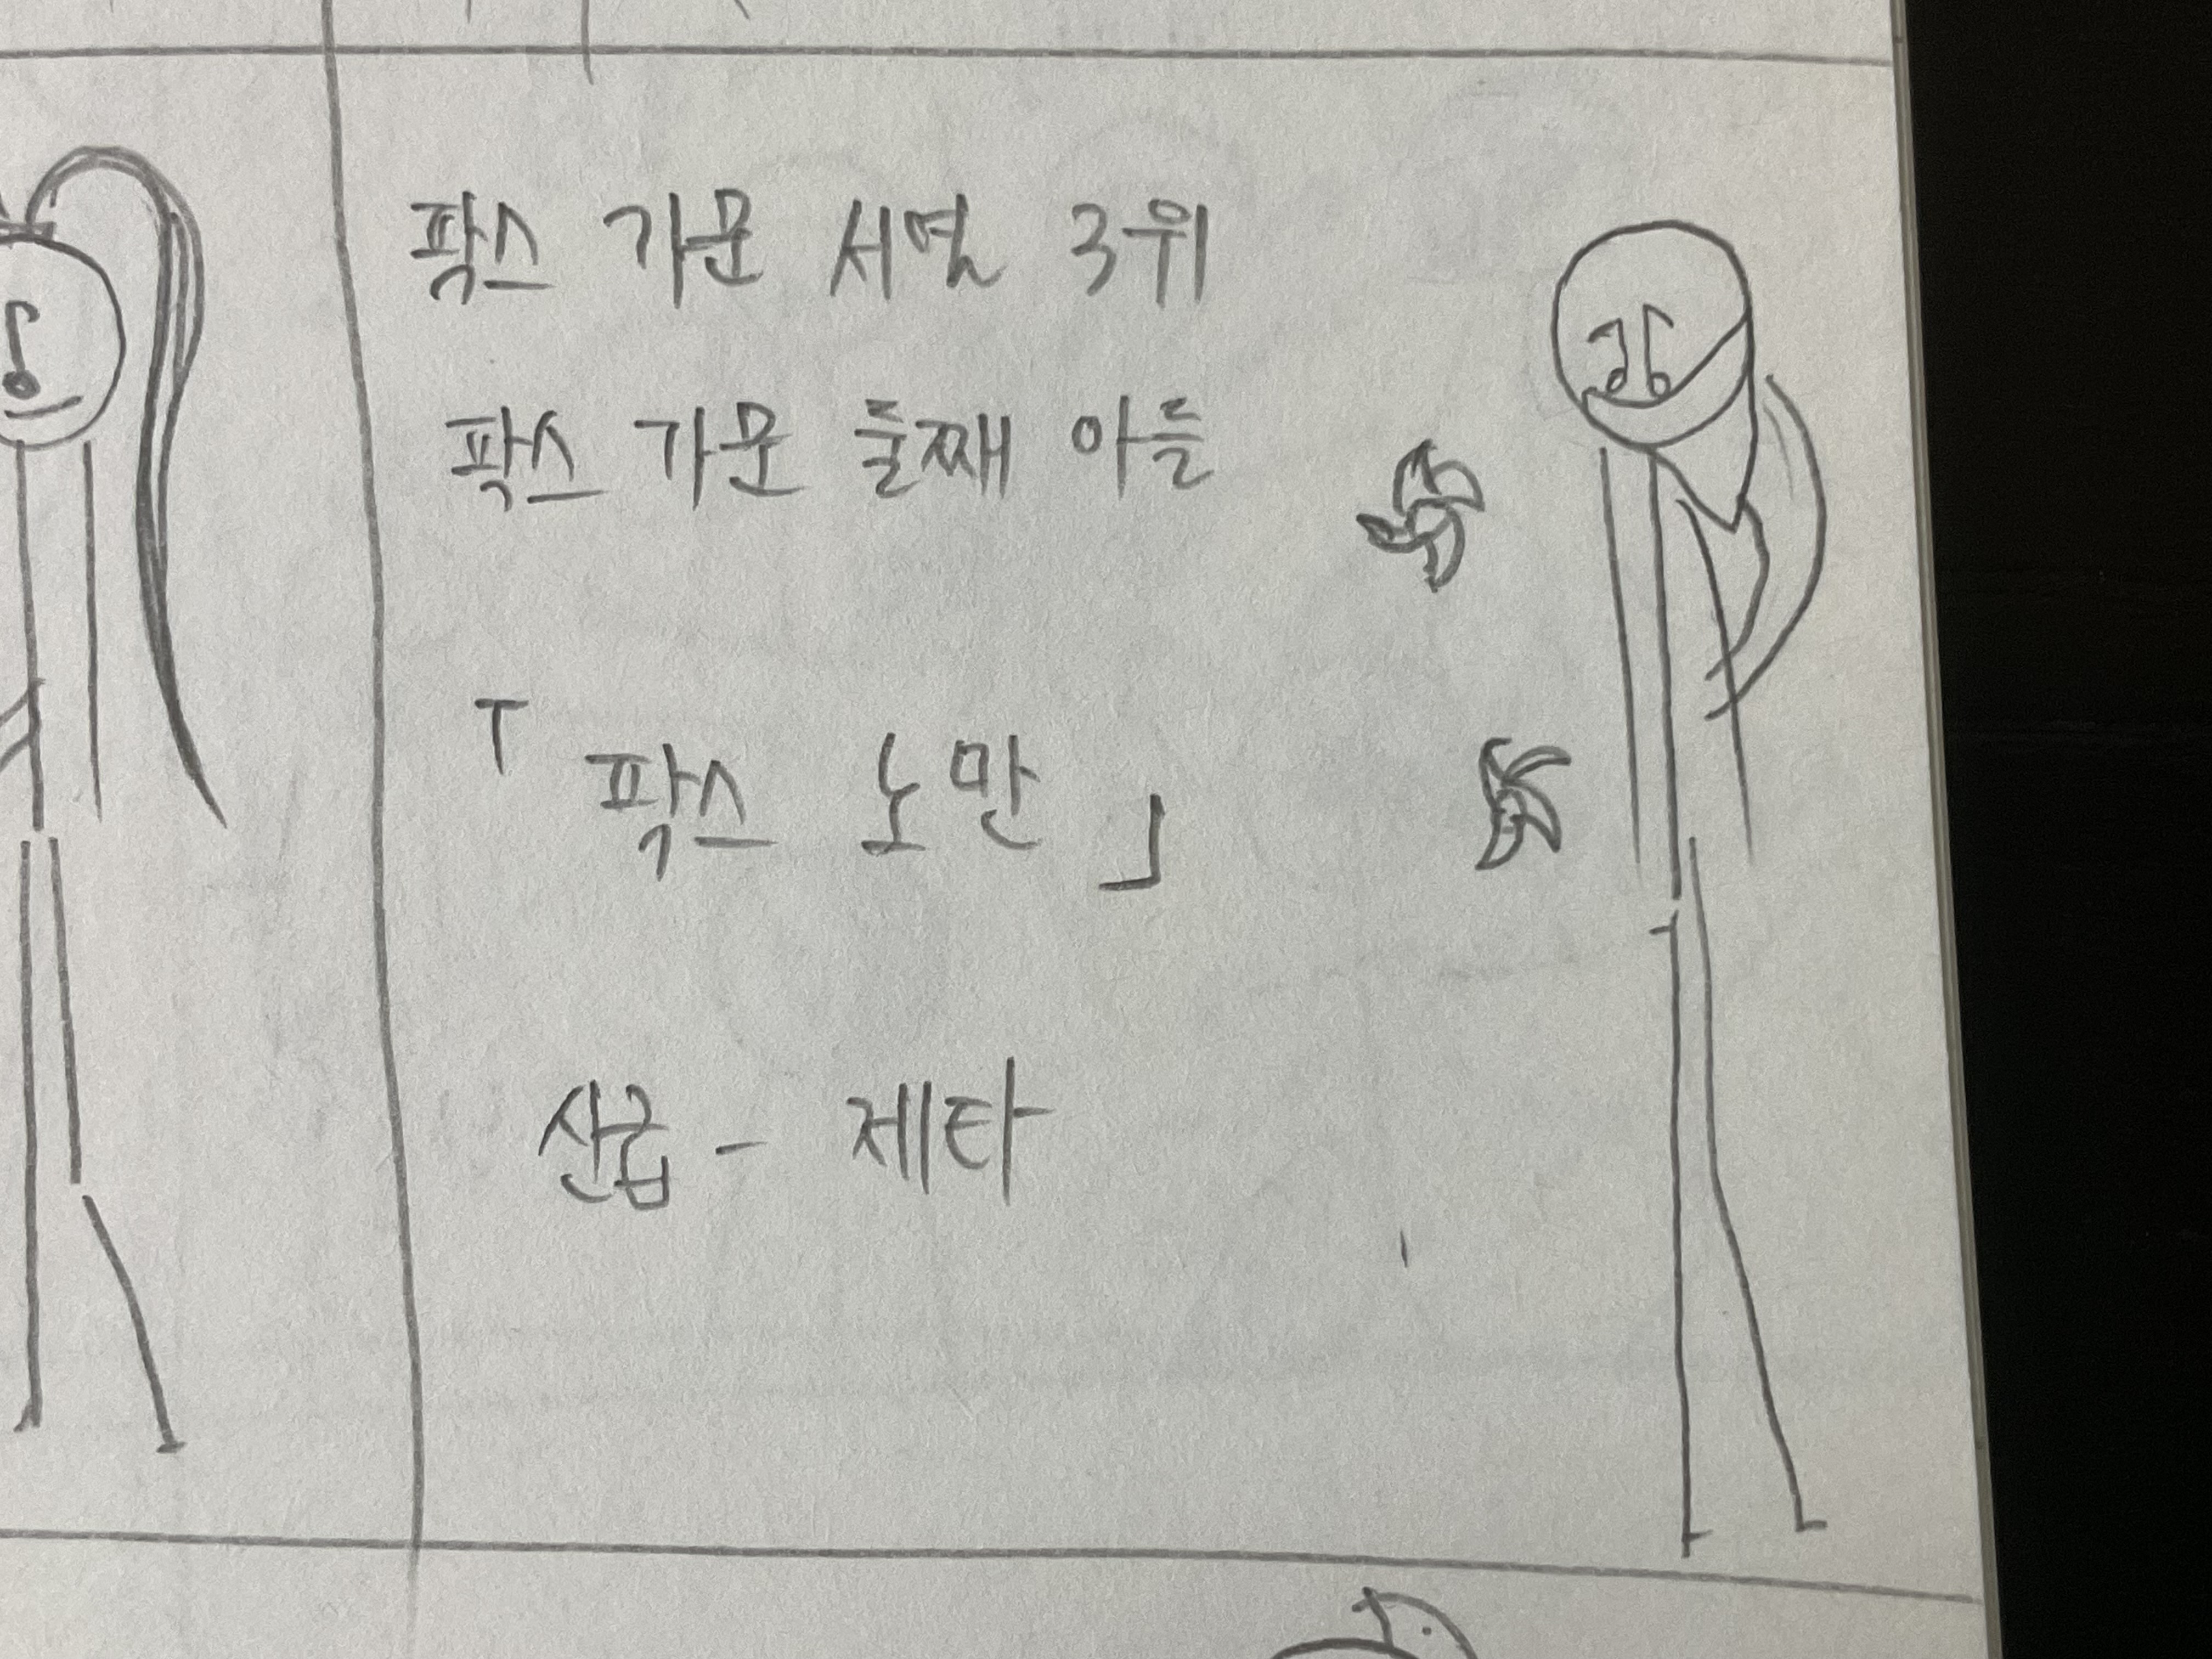 팍스 가문 서열 3위
팍스 가문 둘째 아들
「팍스 노만」
산급 - 제타